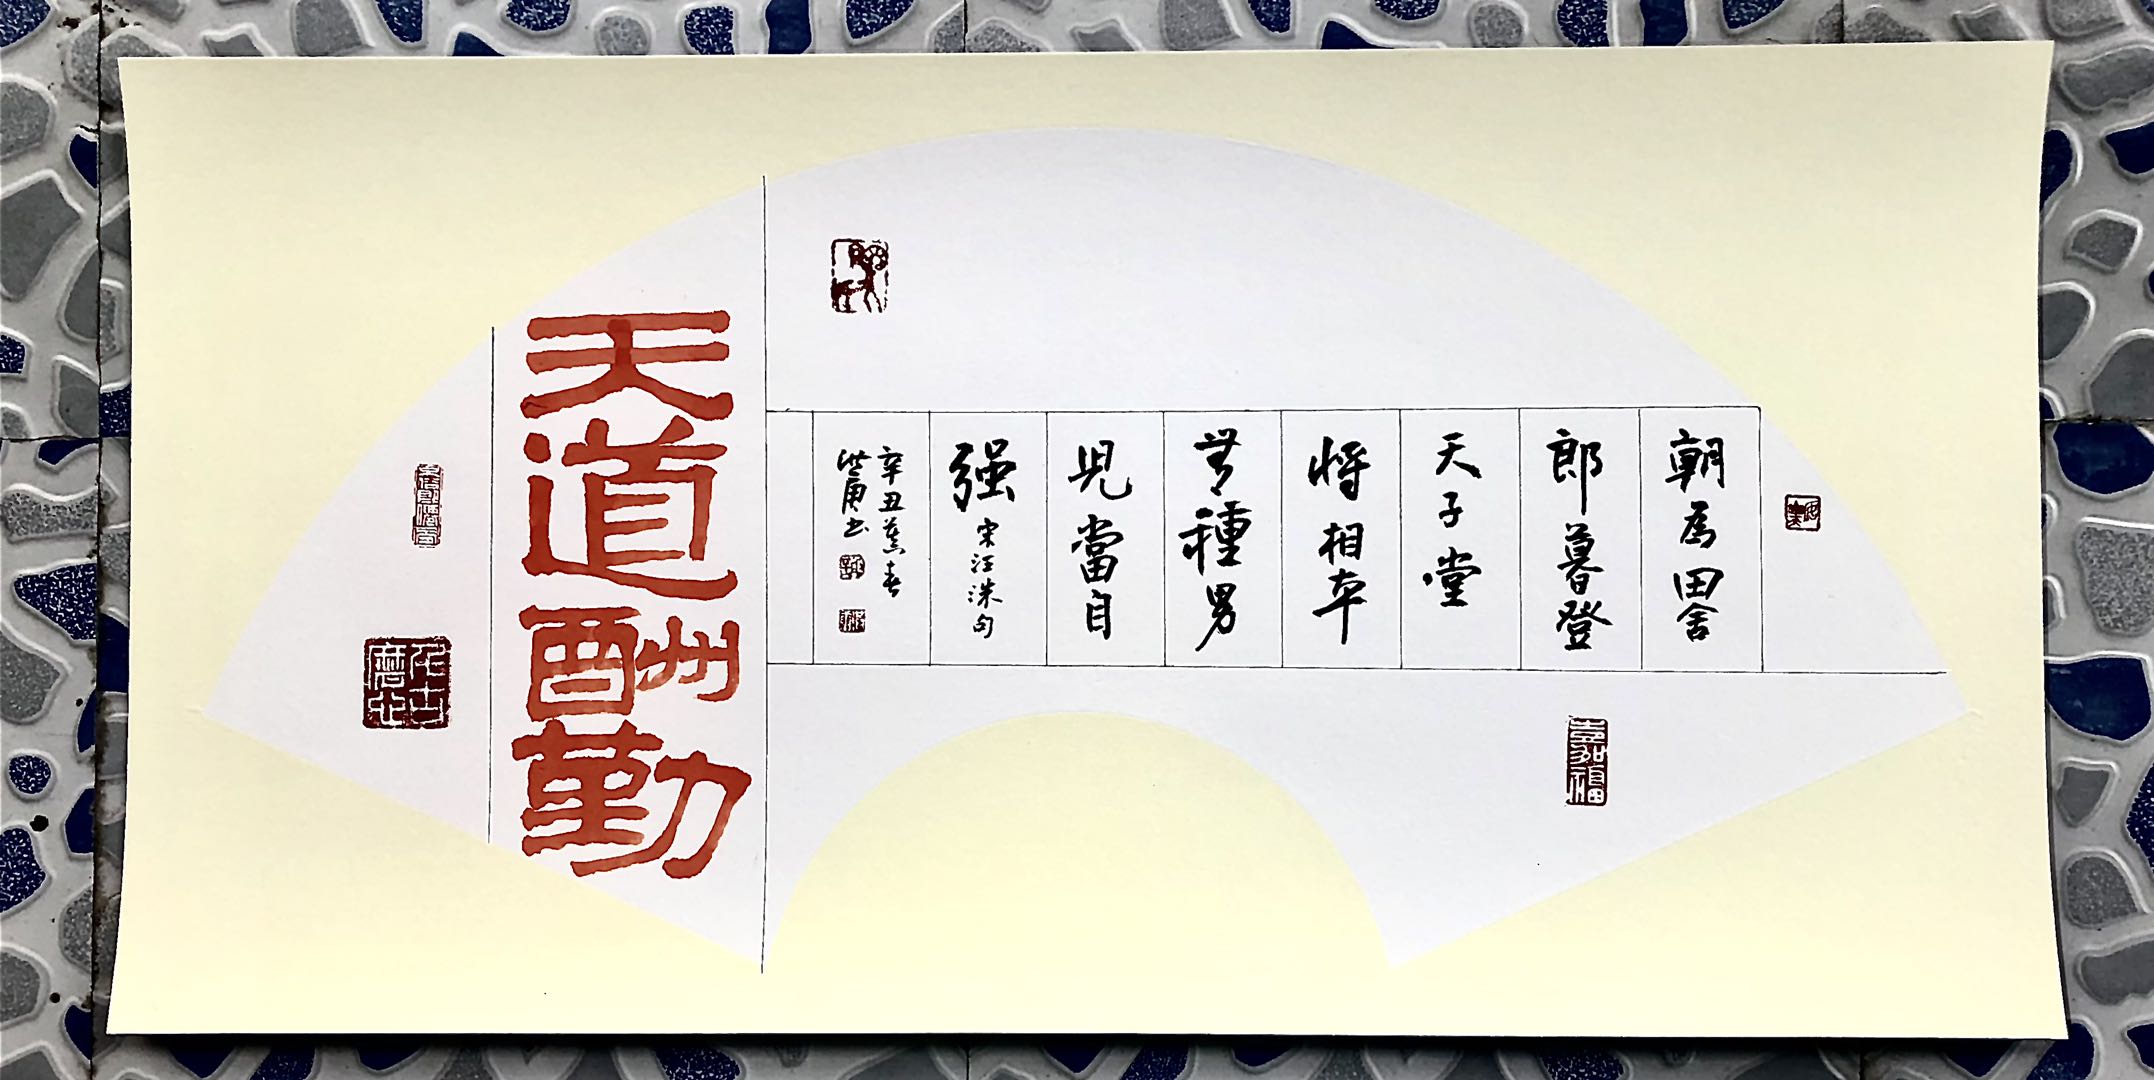 朝为田舍
郎暮登
天子堂
将相本
無種男
児當自
强
宋汪洙句
辛丑春
书
天道酬勤